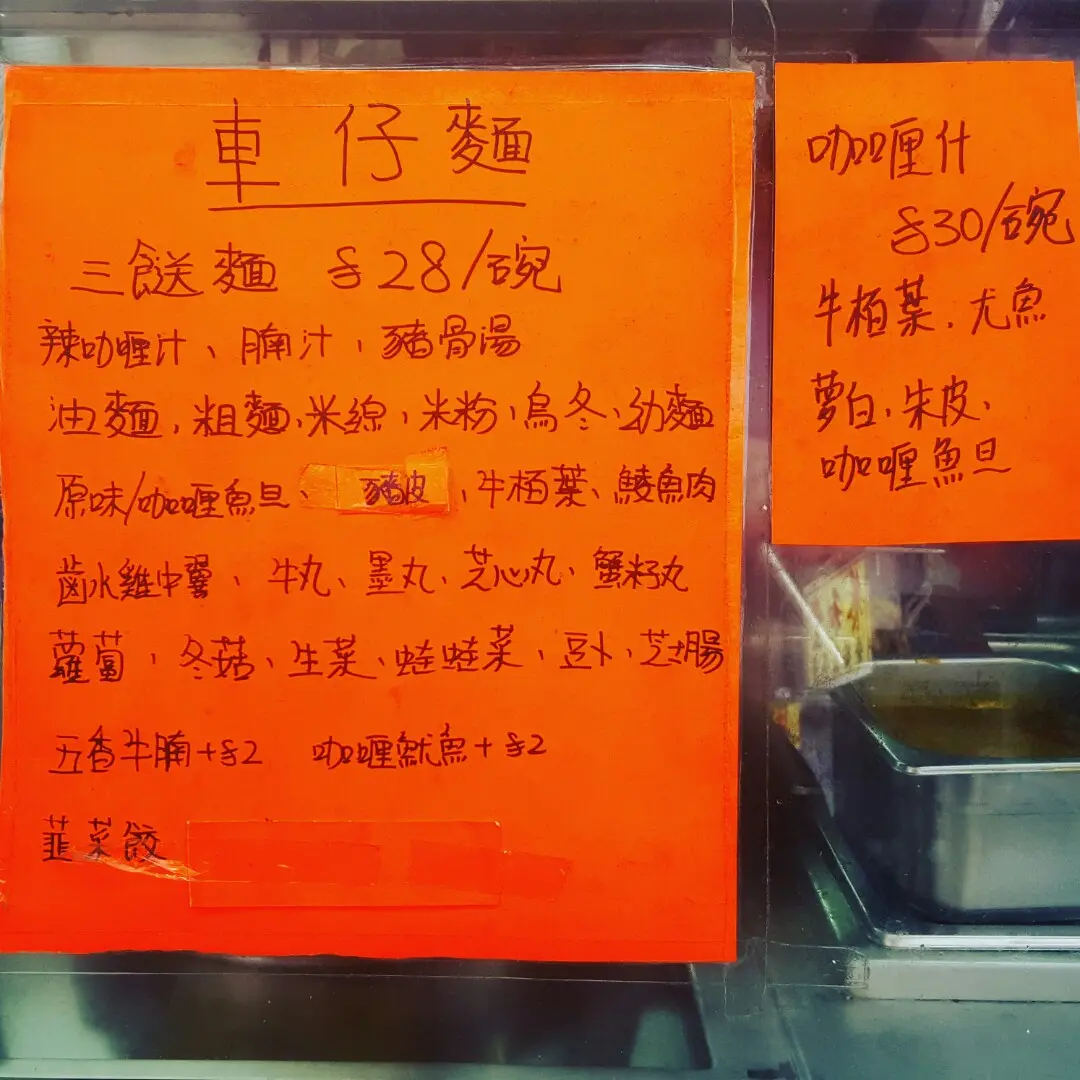 車仔麵
三餸麵 $28/碗
辣咖喱汁、腩汁、豬骨湯
油麵、粗麵、米線、米粉、烏冬、幼麵
原味/咖喱魚旦、豬皮、牛栢葉、鯪魚肉
鹵水雞中翼、牛丸、墨丸、芝心丸、蟹籽丸
蘿蔔、冬菇、生菜、蛙蛙菜、豆卜、芝腸
五香牛腩+$2 咖喱魷魚+$2
韮菜餃
咖喱什
$30/碗
牛栢葉、尤魚
萝白、朱皮、
咖喱魚旦